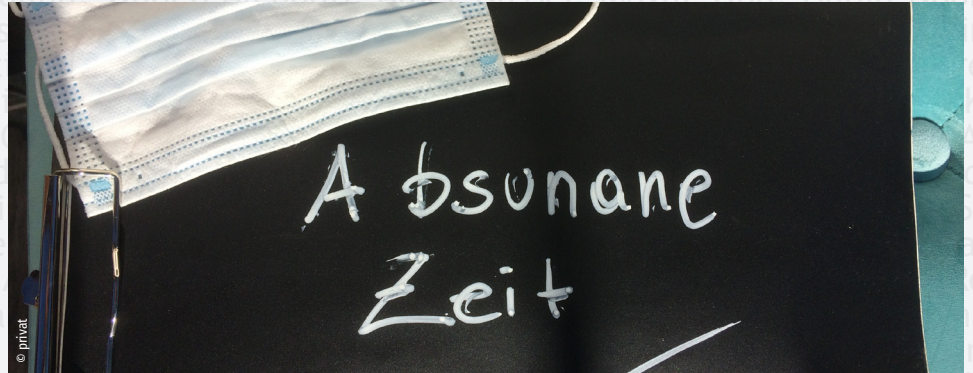 Absunane
Zeit
© privat